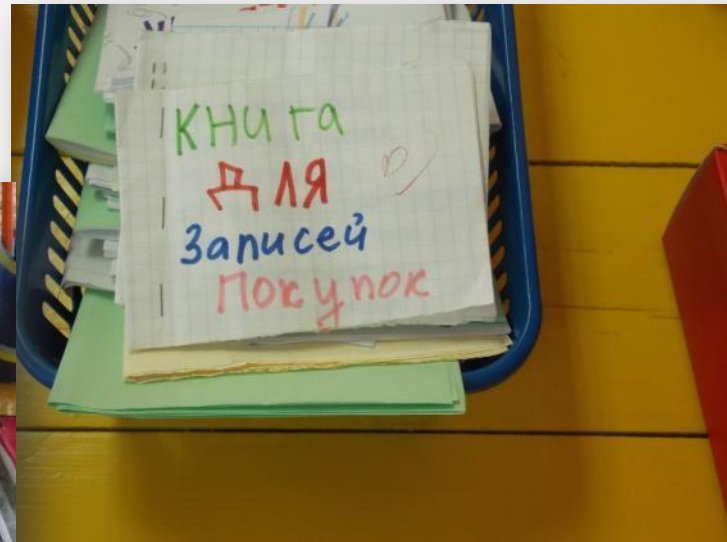 книга
для
записей
покупок